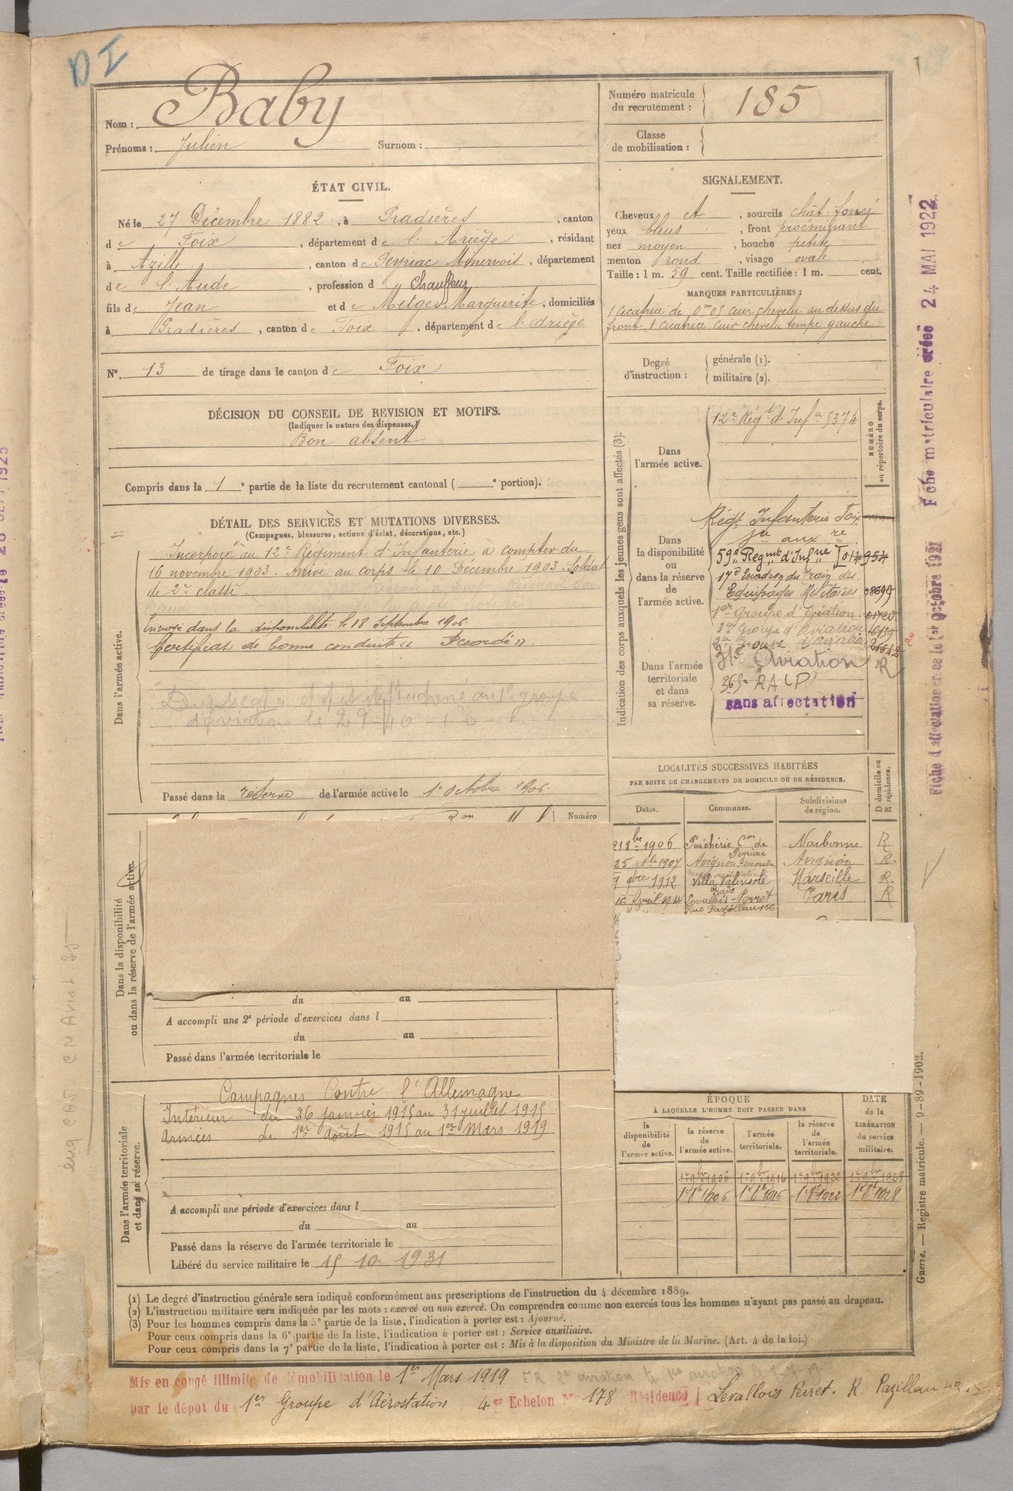 DI
Nom : Baby
Prénoms : Julien Surnom :
Numéro matricule du recrutement : 185
Classe de mobilisation :
ÉTAT CIVIL.
Né le 27 Décembre 1882, à Pradières, canton
de Foix, département de l'Ariège, résidant
à Azille, canton de Peyriac Minervois, département
de l'Aude, profession de Chauffeur
fils de Jean et de Metge Marguerite, domiciliés
à Pradières, canton de Foix, département de l'Ariège
N° 13 de tirage dans le canton de Foix
SIGNALEMENT.
Cheveux ct, sourcils chât. foncé
yeux bleus, front proéminant
nez moyen, bouche petite
menton rond, visage ovale
Taille : 1 m. 59 cent. Taille rectifiée : 1 m. cent.
MARQUES PARTICULIÈRES :
1 cicatrice de 0m05 cuir chevelu au dessus du
front. 1 cicatrice cuir chevelu tempe gauche.
Degré d'instruction : générale (1).
militaire (2).
DÉCISION DU CONSEIL DE REVISION ET MOTIFS.
(Indiquer la nature des dispenses.)
Bon absent
Compris dans la 1e partie de la liste du recrutement cantonal ( e portion).
DÉTAIL DES SERVICES ET MUTATIONS DIVERSES.
(Campagnes, blessures, actions d'éclat, décorations, etc.)
Dans l'armée active.
Incorporé au 12e Régiment d'Infanterie à compter du
16 novembre 1903. Arrivé au corps le 10 Décembre 1903. Soldat
de 2e classe.
Envoyé dans la disponibilité le 18 Septembre 1906
Certificat de bonne conduite « Accordé »
Passé dans la réserve de l'armée active le 1er Octobre 1906
Indication des corps auxquels les jeunes gens sont affectés (3).
NUMÉRO au répertoire du corps.
Dans l'armée active.
12e Régt d'Infie 5374
Dans la disponibilité ou dans la réserve de l'armée active.
Régt Infanterie Foix
59e Régmt d'Infrie
17e Escadron du Train des
Equipages Militaires
1er Groupe d'Aviation
Dans l'armée territoriale et dans sa réserve.
Aviation R
sans affectation
LOCALITÉS SUCCESSIVES HABITÉES
PAR SUITE DE CHANGEMENTS DE DOMICILE OU DE RÉSIDENCE.
Dates. Communes. Subdivisions de région. D domicile ou R résidence.
1906 Puichéric Con de Peyriac Narbonne R
25 1907 Avignon Avignon R.
9 1912 Villa Marseille R.
16 Avril 1914 Levallois-Perret Paris R
Numéro
Dans la disponibilité ou dans la réserve de l'armée active.
du au
A accompli une 2e période d'exercices dans l
du au
Passé dans l'armée territoriale le
Dans l'armée territoriale et dans sa réserve.
Campagnes Contre l'Allemagne
Intérieur du 26 janvier 1915 au 31 juillet 1915
Armées du 1er Août 1915 au 1er Mars 1919
A accompli une période d'exercices dans l
du au
Passé dans la réserve de l'armée territoriale le
Libéré du service militaire le 15 10 1931
ÉPOQUE
À LAQUELLE L'HOMME DOIT PASSER DANS
DATE de la LIBÉRATION du service militaire.
la disponibilité de l'armée active. la réserve de l'armée active. l'armée territoriale. la réserve de l'armée territoriale.
(1) Le degré d'instruction générale sera indiqué conformément aux prescriptions de l'instruction du 4 décembre 1889.
(2) L'instruction militaire sera indiquée par les mots : exercé ou non exercé. On comprendra comme non exercés tous les hommes n'ayant pas passé au drapeau.
(3) Pour les hommes compris dans la 5e partie de la liste, l'indication à porter est : Ajourné.
Pour ceux compris dans la 6e partie de la liste, l'indication à porter est : Service auxiliaire.
Pour ceux compris dans la 7e partie de la liste, l'indication à porter est : Mis à la disposition du Ministre de la Marine. (Art. 4 de la loi.)
Mis en congé illimité de démobilisation le 1er Mars 1919
par le dépot du 1er Groupe d'Aérostation 4e Echelon N° 178 Résidence Levallois Perret. R. Pazillau
Guerre. — Registre matricule. — 9-89-1902.
Fiche matriculaire créée 24 MAI 1922
Fiche d'affectation créée le 1er octobre 1921